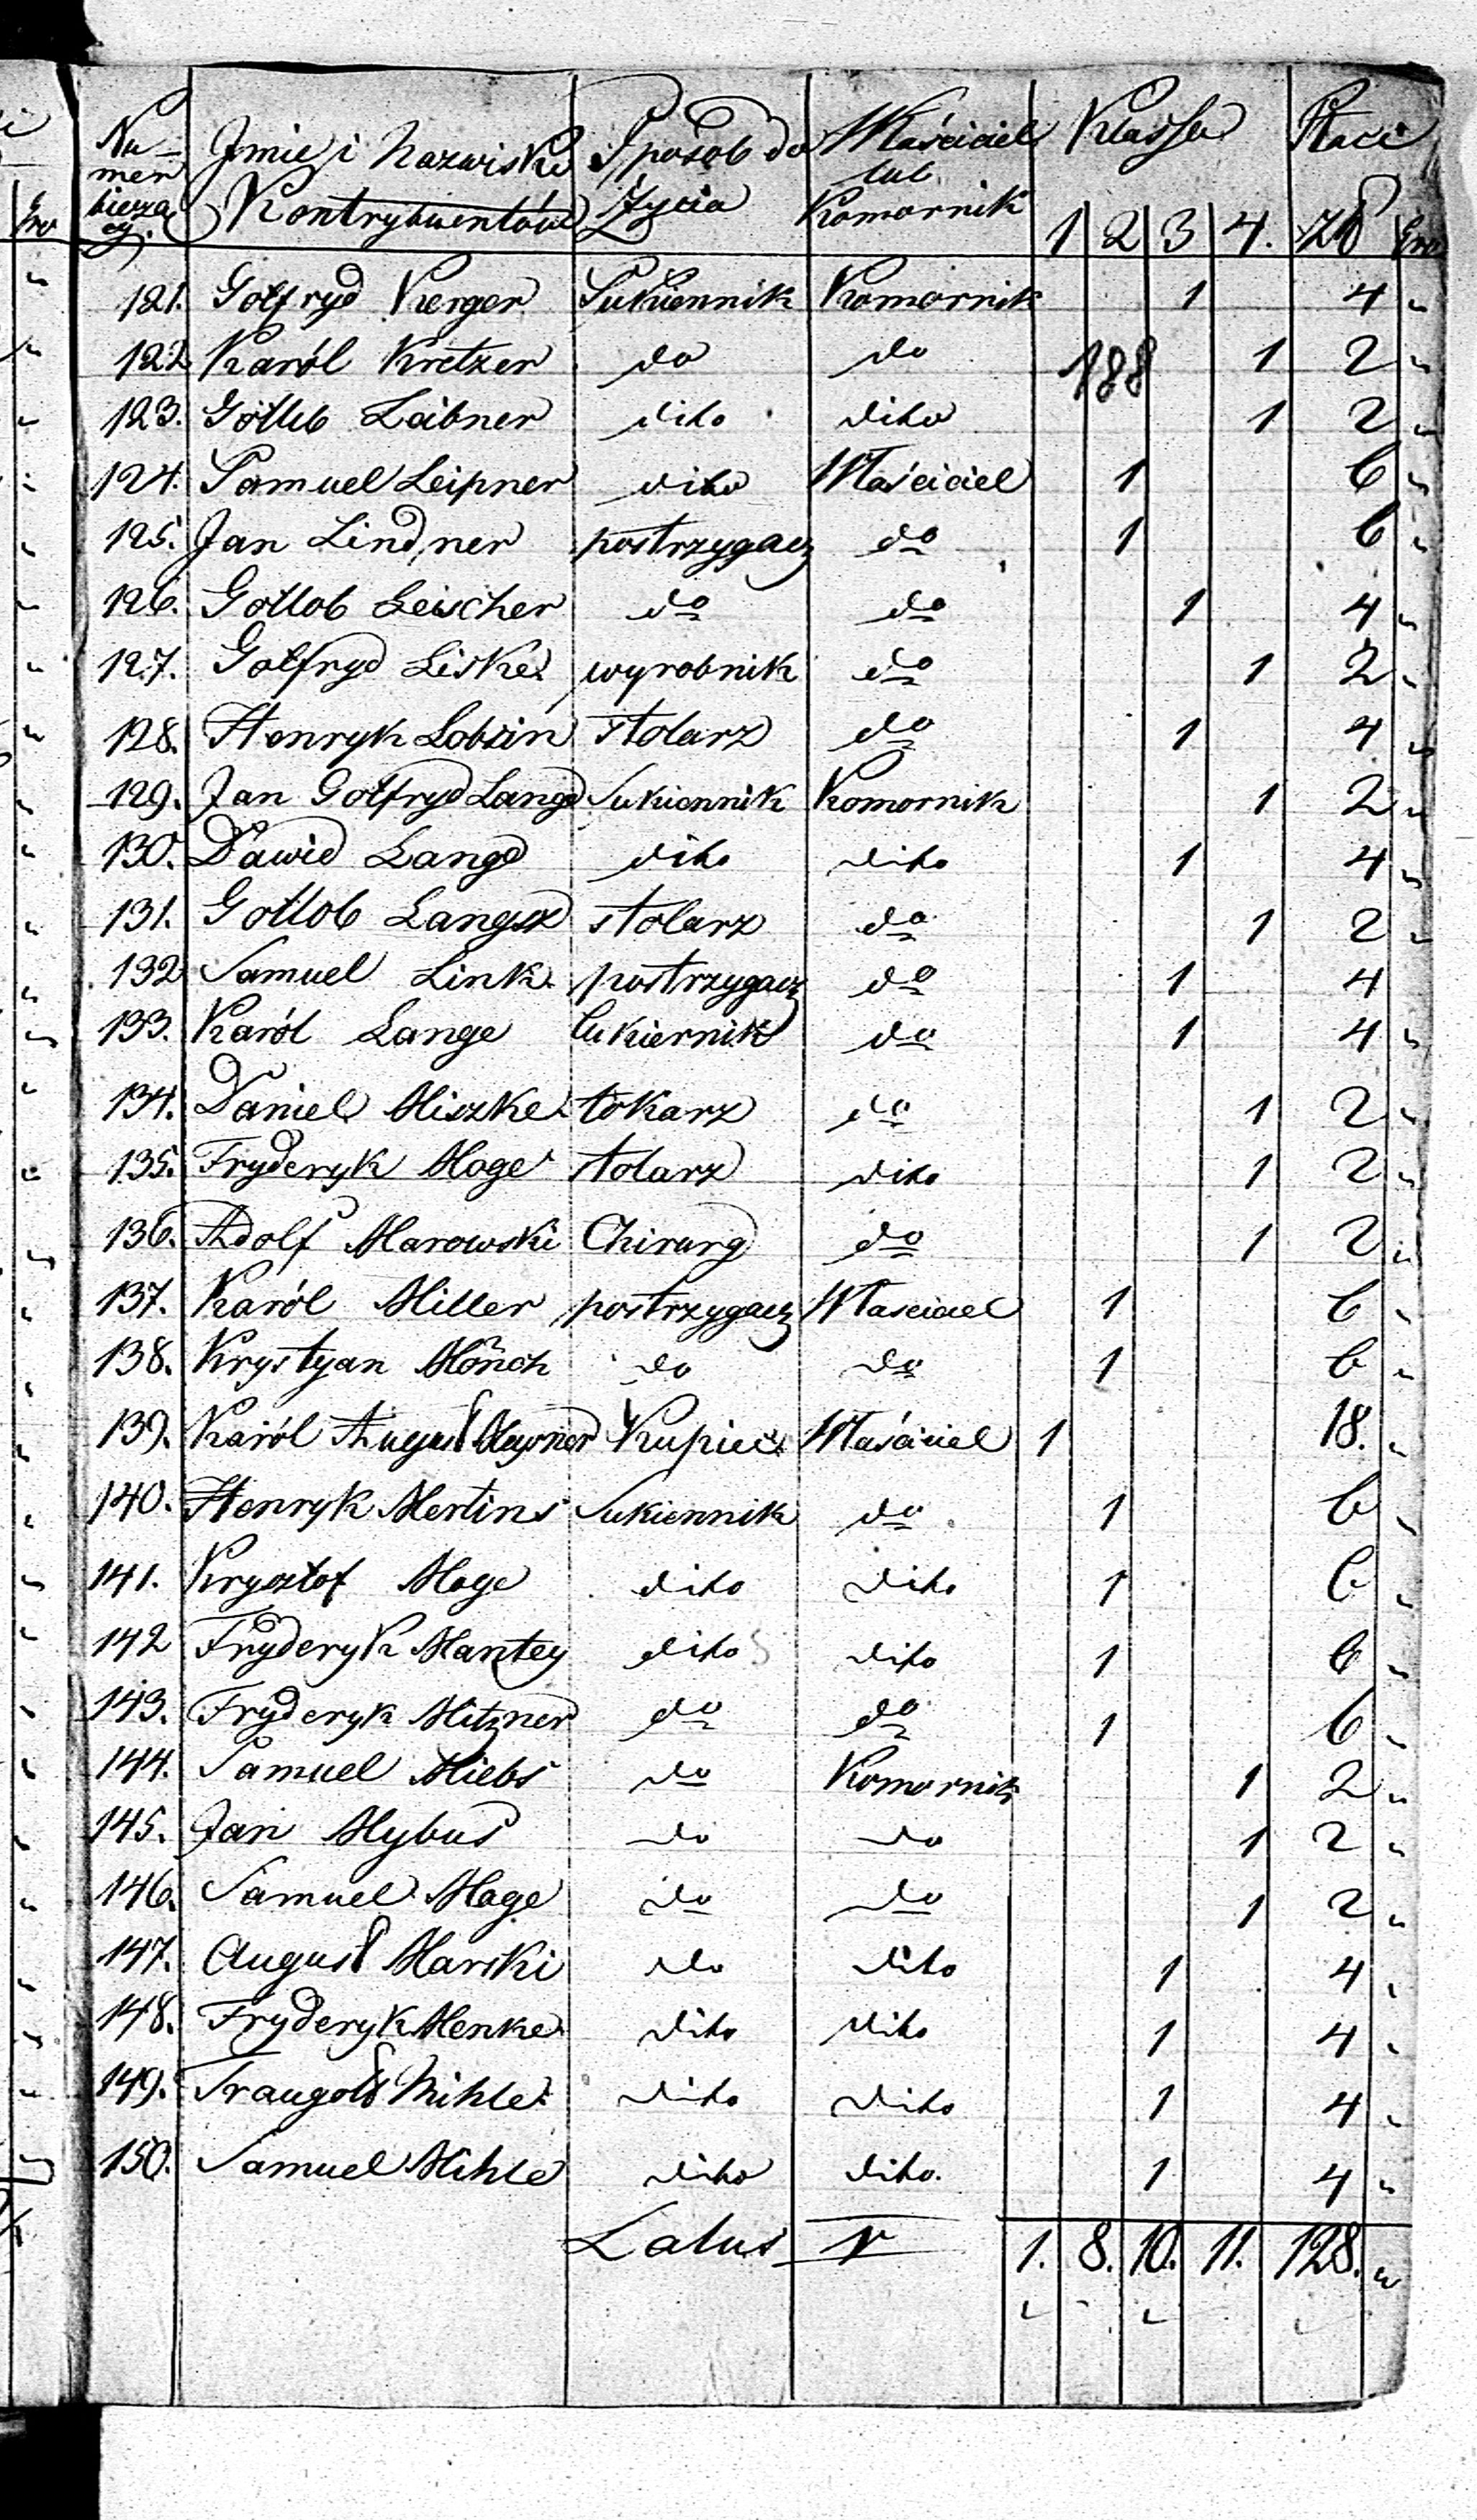 Numer bieżący. Jmie i Nazwisko Kontrybuentów Sposób do Życia Właściciel lub Komornik Klassa 1 2 3 4. Płaci Zł Gro
121. Gotfryd Kerger Sukiennik Komornik 1 4 "
122 Karól Kretzer do do 1 2 "
188
123. Gotlib Leibner dito dito 1 2 "
124. Samuel Leipner dito Właściciel 1 6 "
125. Jan Lindner postrzygacz do 1 6 "
126. Gotlob Leischer do do 1 4 "
127. Gotfryd Liske wyrobnik do 1 2 "
128. Henryk Lobzin stolarz do 1 4 "
129. Jan Gotfryd Lange Sukiennik Komornik 1 2 "
130. Dawid Lange dito dito 1 4 "
131. Gotlob stolarz do 1 2 "
132 Samuel Link postrzygacz do 1 4
133. Karól Lange Cukiernik do 1 4 "
134. Daniel Miszke tokarz do 1 2 "
135. Fryderyk Mage stolarz dito 1 2 "
136. Adolf Marowski Chirurg do 1 2 "
137. Karól Miller postrzygacz Właściciel 1 6 "
138. Krystyan Mönch do do 1 6 "
139. Karól August Kupiec Właściciel 1 18. "
140. Henryk Mertins Sukiennik do 1 6 "
141. Krysztof Mage dito dito 1 6 "
142 Fryderyk Mantey dito dito 1 6 "
143. Fryderyk Mitzner do do 1 6 "
144. Samuel Miebs do Komornik 1 2 "
145. Jan Mybus do do 1 2 "
146. Samuel Mage do do 1 2 "
147. August Marski do dito 1 4 "
148. Fryderyk Menke dito dito 1 4 "
149. Traugott Mihle dito dito 1 4 "
150. Samuel Mihle dito dito. 1 4 "
Latus 1. 8. 10. 11. 128. "